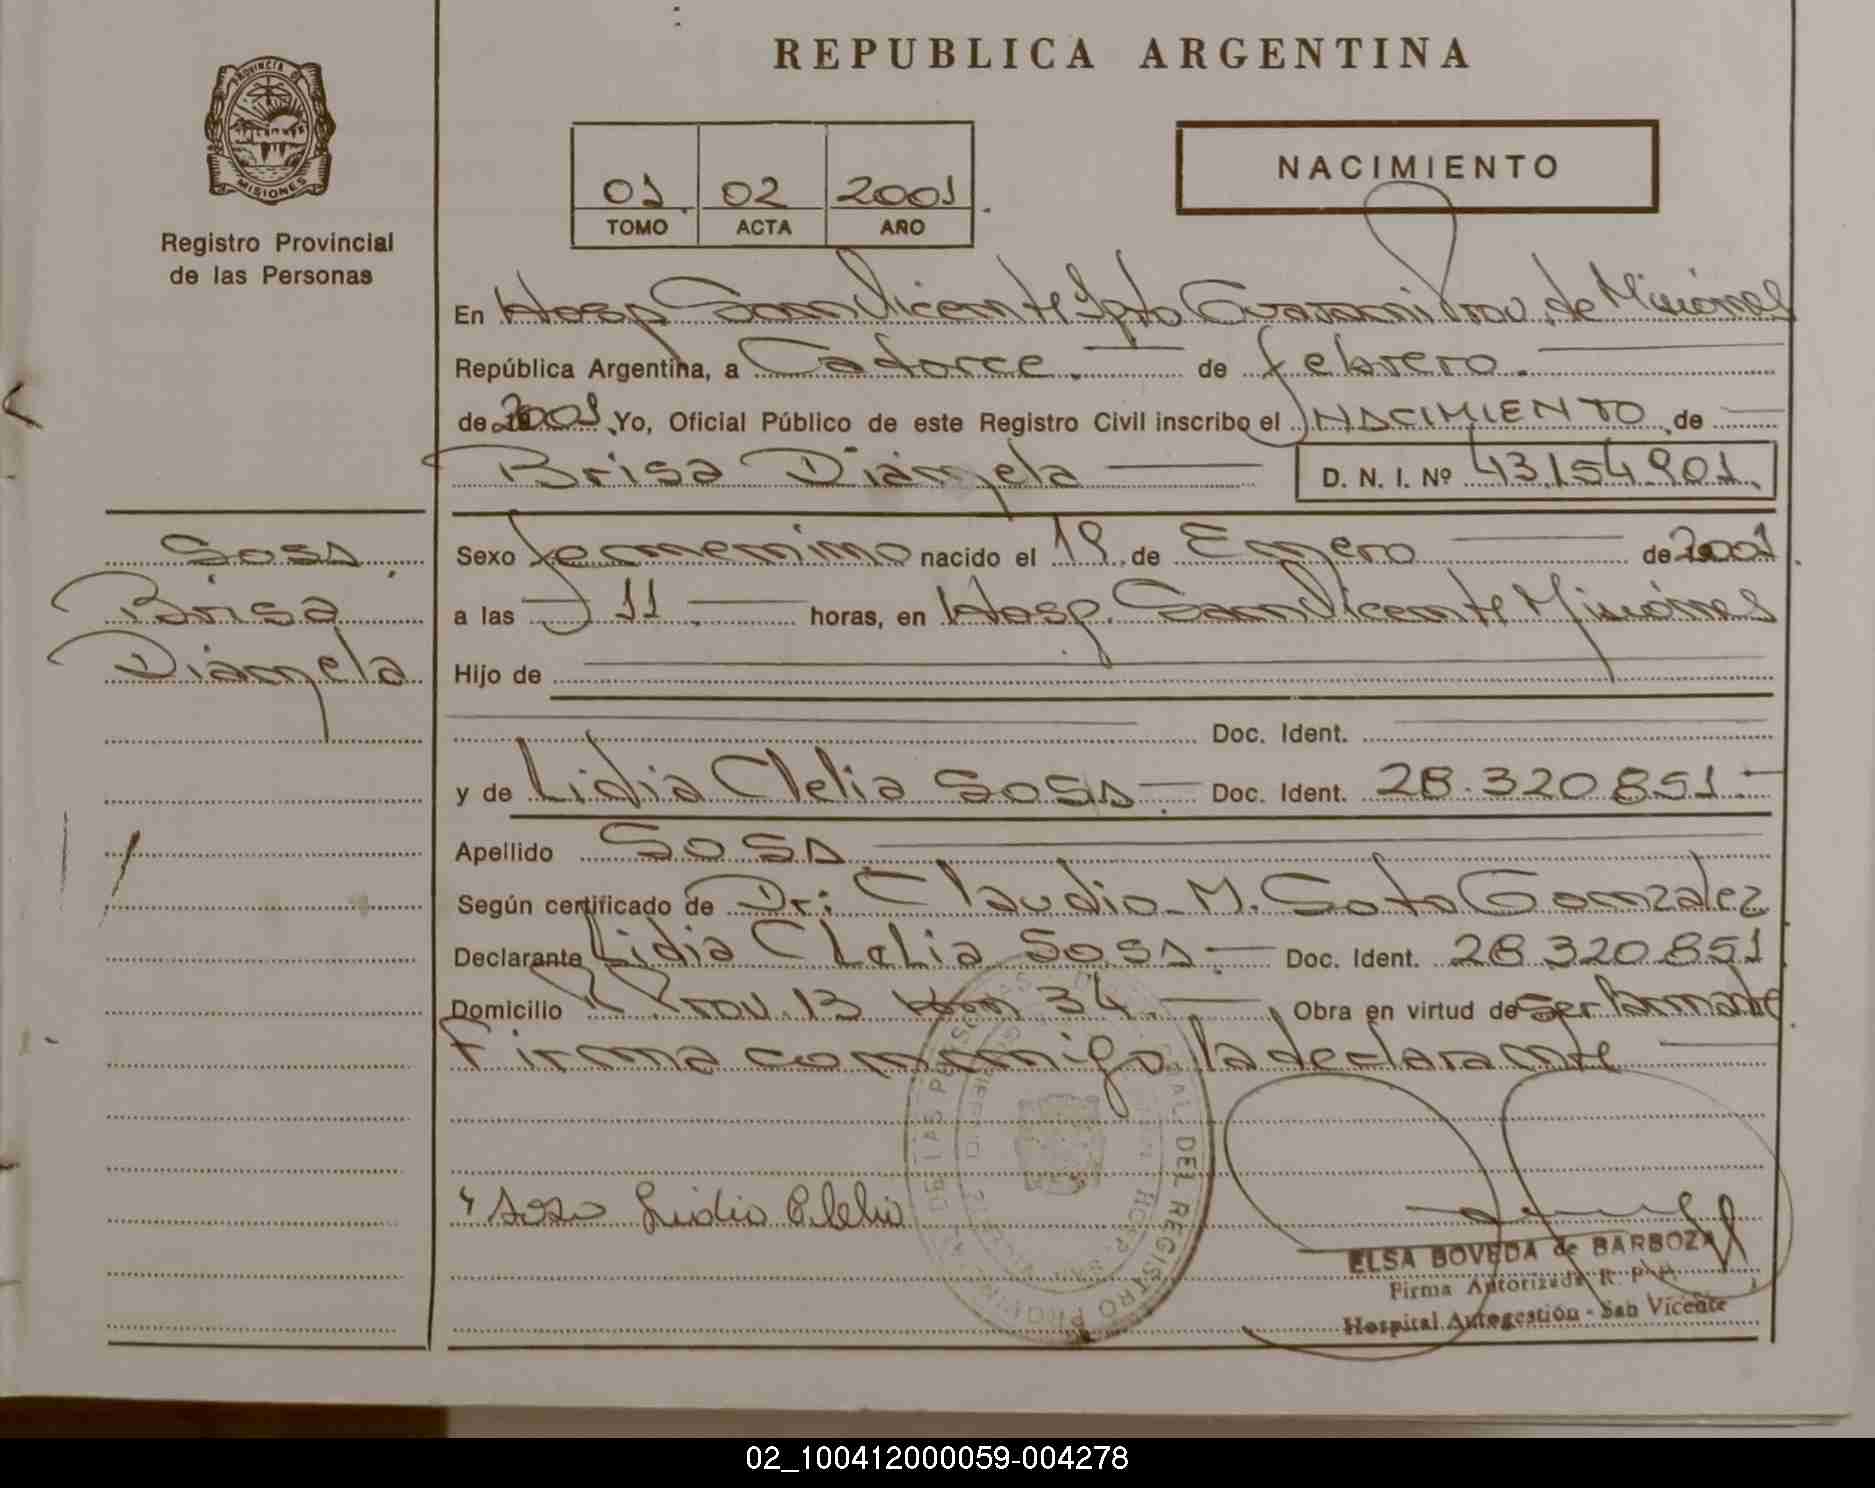 REPUBLICA ARGENTINA
PROVINCIA DE
MISIONES
Registro Provincial
de las Personas
01 02 2001
TOMO ACTA AÑO
NACIMIENTO
En Hosp San Vicente Dpto Guarani Prov. de Misiones
República Argentina, a Catorce. de febrero.
de 2001 Yo, Oficial Público de este Registro Civil inscribo el NACIMIENTO de
Brisa Diángela D. N. I. Nº 43.154.901.
Sosa
Brisa
Diángela
Sexo femenino nacido el 19 de Enero de 2001
a las 11 horas, en Hosp. San Vicente Misiones
Hijo de
Doc. Ident.
y de Lidia Clelia Sosa Doc. Ident. 28.320.851
Apellido Sosa
Según certificado de Dr: Claudio M. Soto Gonzalez
Declarante Lidia Clelia Sosa Doc. Ident. 28.320.851
Domicilio R. Prov. 13 Km 34. Obra en virtud de ser la madre
Firma conmigo la declarante
Sosa Lidia Clelia
DEL REGISTRO DE LAS
ELSA BOVEDA de BARBOZA
Firma Autorizada R P P
Hospital Autogestión - San Vicente
02_100412000059-004278